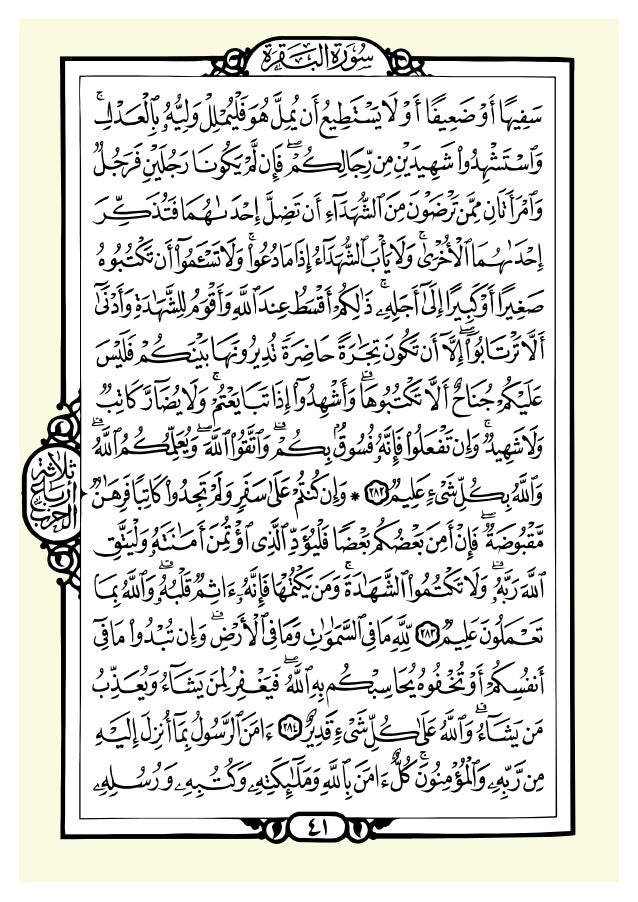 سُورَةُ الْبَقَرَةِ
سَفِيهًا أَوْ ضَعِيفًا أَوْ لَا يَسْتَطِيعُ أَن يُمِلَّ هُوَ فَلْيُمْلِلْ وَلِيُّهُ بِالْعَدْلِ ۚ
وَاسْتَشْهِدُوا شَهِيدَيْنِ مِن رِّجَالِكُمْ ۖ فَإِن لَّمْ يَكُونَا رَجُلَيْنِ فَرَجُلٌ
وَامْرَأَتَانِ مِمَّن تَرْضَوْنَ مِنَ الشُّهَدَاءِ أَن تَضِلَّ إِحْدَىٰهُمَا فَتُذَكِّرَ
إِحْدَىٰهُمَا الْأُخْرَىٰ ۚ وَلَا يَأْبَ الشُّهَدَاءُ إِذَا مَا دُعُوا ۚ وَلَا تَسْـَٔمُوا أَن تَكْتُبُوهُ
صَغِيرًا أَوْ كَبِيرًا إِلَىٰ أَجَلِهِ ۚ ذَٰلِكُمْ أَقْسَطُ عِندَ اللَّهِ وَأَقْوَمُ لِلشَّهَٰدَةِ وَأَدْنَىٰ
أَلَّا تَرْتَابُوا ۖ إِلَّا أَن تَكُونَ تِجَٰرَةً حَاضِرَةً تُدِيرُونَهَا بَيْنَكُمْ فَلَيْسَ
عَلَيْكُمْ جُنَاحٌ أَلَّا تَكْتُبُوهَا ۗ وَأَشْهِدُوا إِذَا تَبَايَعْتُمْ ۚ وَلَا يُضَارَّ كَاتِبٌ
وَلَا شَهِيدٌ ۚ وَإِن تَفْعَلُوا فَإِنَّهُ فُسُوقٌ بِكُمْ ۗ وَاتَّقُوا اللَّهَ ۖ وَيُعَلِّمُكُمُ اللَّهُ ۗ
وَاللَّهُ بِكُلِّ شَيْءٍ عَلِيمٌ ٢٨٢ * وَإِن كُنتُمْ عَلَىٰ سَفَرٍ وَلَمْ تَجِدُوا كَاتِبًا فَرِهَٰنٌ
مَّقْبُوضَةٌ ۖ فَإِنْ أَمِنَ بَعْضُكُم بَعْضًا فَلْيُؤَدِّ الَّذِي اؤْتُمِنَ أَمَٰنَتَهُ وَلْيَتَّقِ
اللَّهَ رَبَّهُ ۗ وَلَا تَكْتُمُوا الشَّهَٰدَةَ ۚ وَمَن يَكْتُمْهَا فَإِنَّهُ ءَاثِمٌ قَلْبُهُ ۗ وَاللَّهُ بِمَا
تَعْمَلُونَ عَلِيمٌ ٢٨٣ لِّلَّهِ مَا فِي السَّمَٰوَٰتِ وَمَا فِي الْأَرْضِ ۗ وَإِن تُبْدُوا مَا فِي
أَنفُسِكُمْ أَوْ تُخْفُوهُ يُحَاسِبْكُم بِهِ اللَّهُ ۖ فَيَغْفِرُ لِمَن يَشَاءُ وَيُعَذِّبُ
مَن يَشَاءُ ۗ وَاللَّهُ عَلَىٰ كُلِّ شَيْءٍ قَدِيرٌ ٢٨٤ ءَامَنَ الرَّسُولُ بِمَا أُنزِلَ إِلَيْهِ
مِن رَّبِّهِ وَالْمُؤْمِنُونَ ۚ كُلٌّ ءَامَنَ بِاللَّهِ وَمَلَٰٓئِكَتِهِ وَكُتُبِهِ وَرُسُلِهِ
ثلاثة
أرباع
الحزب
٤١